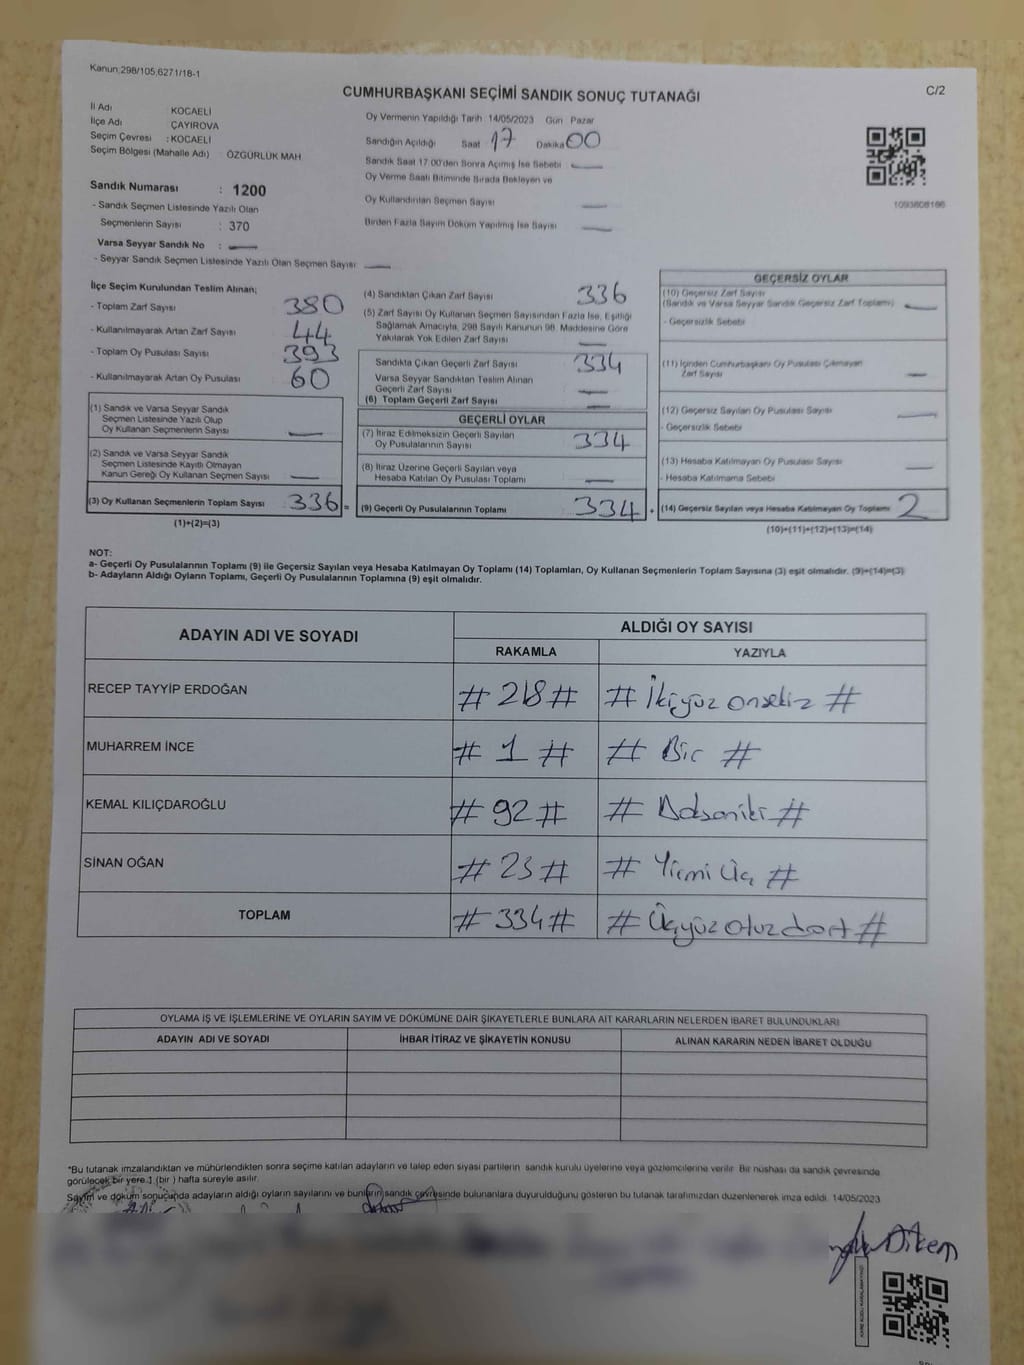 Kanun;298/105,6271/18-1
C/2
CUMHURBAŞKANI SEÇİMİ SANDIK SONUÇ TUTANAĞI
İl Adı KOCAELİ
İlçe Adı ÇAYIROVA
Seçim Çevresi : KOCAELİ
Seçim Bölgesi (Mahalle Adı) : ÖZGÜRLÜK MAH.
Sandık Numarası : 1200
- Sandık Seçmen Listesinde Yazılı Olan
Seçmenlerin Sayısı : 370
Varsa Seyyar Sandık No :
- Seyyar Sandık Seçmen Listesinde Yazılı Olan Seçmen Sayısı
Oy Vermenin Yapıldığı Tarih :14/05/2023 Gün Pazar
Sandığın Açıldığı Saat 17 Dakika 00
Sandık Saat 17:00'den Sonra Açımış İse Sebebi
Oy Verme Saati Bitiminde Sırada Bekleyen ve
Oy Kullandırılan Seçmen Sayısı
Birden Fazla Sayım Döküm Yapılmış İse Sayısı
1093608166
İlçe Seçim Kurulundan Teslim Alınan;
- Toplam Zarf Sayısı 380
- Kullanılmayarak Artan Zarf Sayısı 44
- Toplam Oy Pusulası Sayısı 393
- Kullanılmayarak Artan Oy Pusulası 60
(1) Sandık ve Varsa Seyyar Sandık
Seçmen Listesinde Yazılı Olup
Oy Kullanan Seçmenlerin Sayısı
(2) Sandık ve Varsa Seyyar Sandık
Seçmen Listesinde Kayıtlı Olmayan
Kanun Gereği Oy Kullanan Seçmen Sayısı
(3) Oy Kullanan Seçmenlerin Toplam Sayısı 336 =
(1)+(2)=(3)
(4) Sandıktan Çıkan Zarf Sayısı 336
(5) Zarf Sayısı Oy Kullanan Seçmen Sayısından Fazla İse, Eşitliği
Sağlamak Amacıyla, 298 Sayılı Kanunun 98. Maddesine Göre
Yakılarak Yok Edilen Zarf Sayısı
Sandıkta Çıkan Geçerli Zarf Sayısı 334
Varsa Seyyar Sandıktan Teslim Alınan
Geçerli Zarf Sayısı
(6) Toplam Geçerli Zarf Sayısı
GEÇERLİ OYLAR
(7) İtiraz Edilmeksizin Geçerli Sayılan
Oy Pusulalarının Sayısı 334
(8) İtiraz Üzerine Geçerli Sayılan veya
Hesaba Katılan Oy Pusulası Toplamı
(9) Geçerli Oy Pusulalarının Toplamı 334 +
GEÇERSİZ OYLAR
(10) Geçersiz Zarf Sayısı
(Sandık ve Varsa Seyyar Sandık Geçersiz Zarf Toplamı)
- Geçersizlik Sebebi
(11) İçinden Cumhurbaşkanı Oy Pusulası Çıkmayan
Zarf Sayısı
(12) Geçersiz Sayılan Oy Pusulası Sayısı
- Geçersizlik Sebebi
(13) Hesaba Katılmayan Oy Pusulası Sayısı
- Hesaba Katılmama Sebebi
(14) Geçersiz Sayılan veya Hesaba Katılmayan Oy Toplamı 2
(10)+(11)+(12)+(13)=(14)
NOT:
a- Geçerli Oy Pusulasının Toplamı (9) ile Geçersiz Sayılan veya Hesaba Katılmayan Oy Toplamı (14) Toplamları, Oy Kullanan Seçmenlerin Toplam Sayısına (3) eşit olmalıdır. (9)+(14)=(3)
b- Adayların Aldığı Oyların Toplamı, Geçerli Oy Pusulasının Toplamına (9) eşit olmalıdır.
ADAYIN ADI VE SOYADI ALDIĞI OY SAYISI
RAKAMLA YAZIYLA
RECEP TAYYİP ERDOĞAN # 218 # # İkiyüz onsekiz #
MUHARREM İNCE # 1 # # Bir #
KEMAL KILIÇDAROĞLU # 92 # # Doksaniki #
SİNAN OĞAN # 23 # # Yirmi Üç #
TOPLAM # 334 # # Üçyüz otuz dört #
OYLAMA İŞ VE İŞLEMLERİNE VE OYLARIN SAYIM VE DÖKÜMÜNE DAİR ŞİKAYETLERLE BUNLARA AİT KARARLARIN NELERDEN İBARET BULUNDUKLARI
ADAYIN ADI VE SOYADI İHBAR İTİRAZ VE ŞİKAYETİN KONUSU ALINAN KARARIN NEDEN İBARET OLDUĞU
*Bu tutanak imzalandıktan ve mühürlendikten sonra seçime katılan adayların ve talep eden siyasi partilerin sandık kurulu üyelerine veya gözlemcilerine verilir. Bir nüshası da sandık çevresinde
görülecek bir yere 1 (bir ) hafta süreyle asılır.
Sayım ve döküm sonucunda adayların aldığı oyların sayılarını ve bunların sandık çevresinde bulunanlara duyurulduğunu gösteren bu tutanak tarafımızdan düzenlenerek imza edildi. 14/05/2023